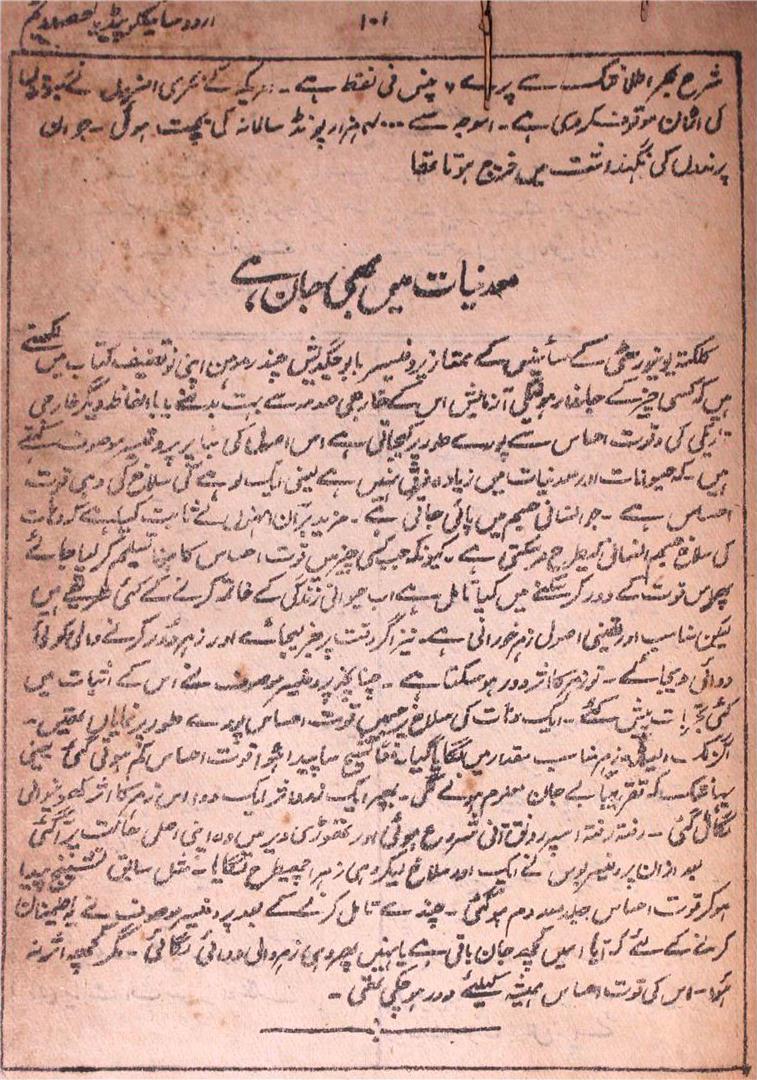 اردو سائیکلو پیڈیا حصہ دہم
۱۰۱
شرح بحر اطلانٹک سے پرے ۶ پنس فی لفظ ہے۔ امریکہ کے بحری افسروں نے کبوتروں
کی اڑان موقوف کردی ہے۔ اسوجہ سے ہزار پونڈ سالانہ کی بچت ہوگی۔ جو ان
پرندوں کی نگہداشت میں خرچ ہوتا تھا
معدنیات میں بھی جان ہے
کلکتہ یونیورسٹی کے سائینس کے ممتاز پروفیسر بابو جگدیش چندر بوس اپنی نو تصنیف کتاب میں لکھتے
ہیں کہ کسی چیز کے جاندار ہونیکی آزمایش اس کے خارجی صدمہ سے ہیت بدلنے یا بالفاظ دیگر خارجی
تازگی کی قوت احساس سے پورے طور پر کیجاتی ہے اس اصول کی بنا پر پروفیسر موصوف کہتے
ہیں۔ کہ حیوانات اور معدنیات میں زیادہ فرق نہیں ہے یعنی ایک لوہے کی سلاخ کی وہی قوت
احساس ہے۔ جو انسانی جسم میں پائی جاتی ہے۔ مزید برآں انہوں نے ثابت کیا ہے کہ دہات
کی سلاخ جسم انسانی کیطرح مر سکتی ہے۔ کیونکہ جب کسی چیز میں قوت احساس کا ہونا تسلیم کر لیا جائے
پھر اس قوت کے دور کر سکنے میں کیا تامل ہے اب حیوانی زندگی کے خاتمہ کرنے کے کئی طریقے ہیں
لیکن مناسب اور یقینی اصول زہر خورانی ہے۔ نیز اگر وقت پر خبر لیجائے اور زہر دور کرنے والی کوئی
دوائی دیجائے۔ تو زہر کا اثر دور ہو سکتا ہے۔ چنانچہ پروفیسر موصوف نے اس کے اثبات میں
کئی تجربات پیش کئے۔ ایک دہات کی سلاخ پر جسمیں قوت احساس پورے طور پر نمایاں تھیں۔
اگزلک ایسڈ زہر مناسب مقدار میں لگایا گیا۔ فوراً تشنج سا پیدا ہوا قوت احساس کم ہوتی گئی یعنی
یہانتک کہ تقریباً بے جان معلوم ہونے لگی۔ پھر ایک زود اثر ایک دوا اس زہر کا اثر کھو دینوالی
لگائی گئی۔ رفتہ رفتہ اسپر رونق آنی شروع ہوئی اور تھوڑی دیر میں وہ اپنی اصلی حالت پر آگئی
بعد ازاں پروفیسر بوس نے ایک اور سلاخ لیکر وہی زہر اچھیطرح لگایا۔ مثل سابق تشنج پیدا
ہو کر قوت احساس جلد معدوم ہو گئی۔ چندے تامل کرنے کے بعد پروفیسر موصوف نے یہ اطمینان
کرنے کے لئے کہ آیا اسمیں کچھ جان باقی ہے یا نہیں پھر وہی زہر والی دوائی لگائی۔ مگر کچھ اثر نہ
ہوا۔ اس کی قوت احساس ہمیشہ کیلئے دور ہو چکی تھی۔